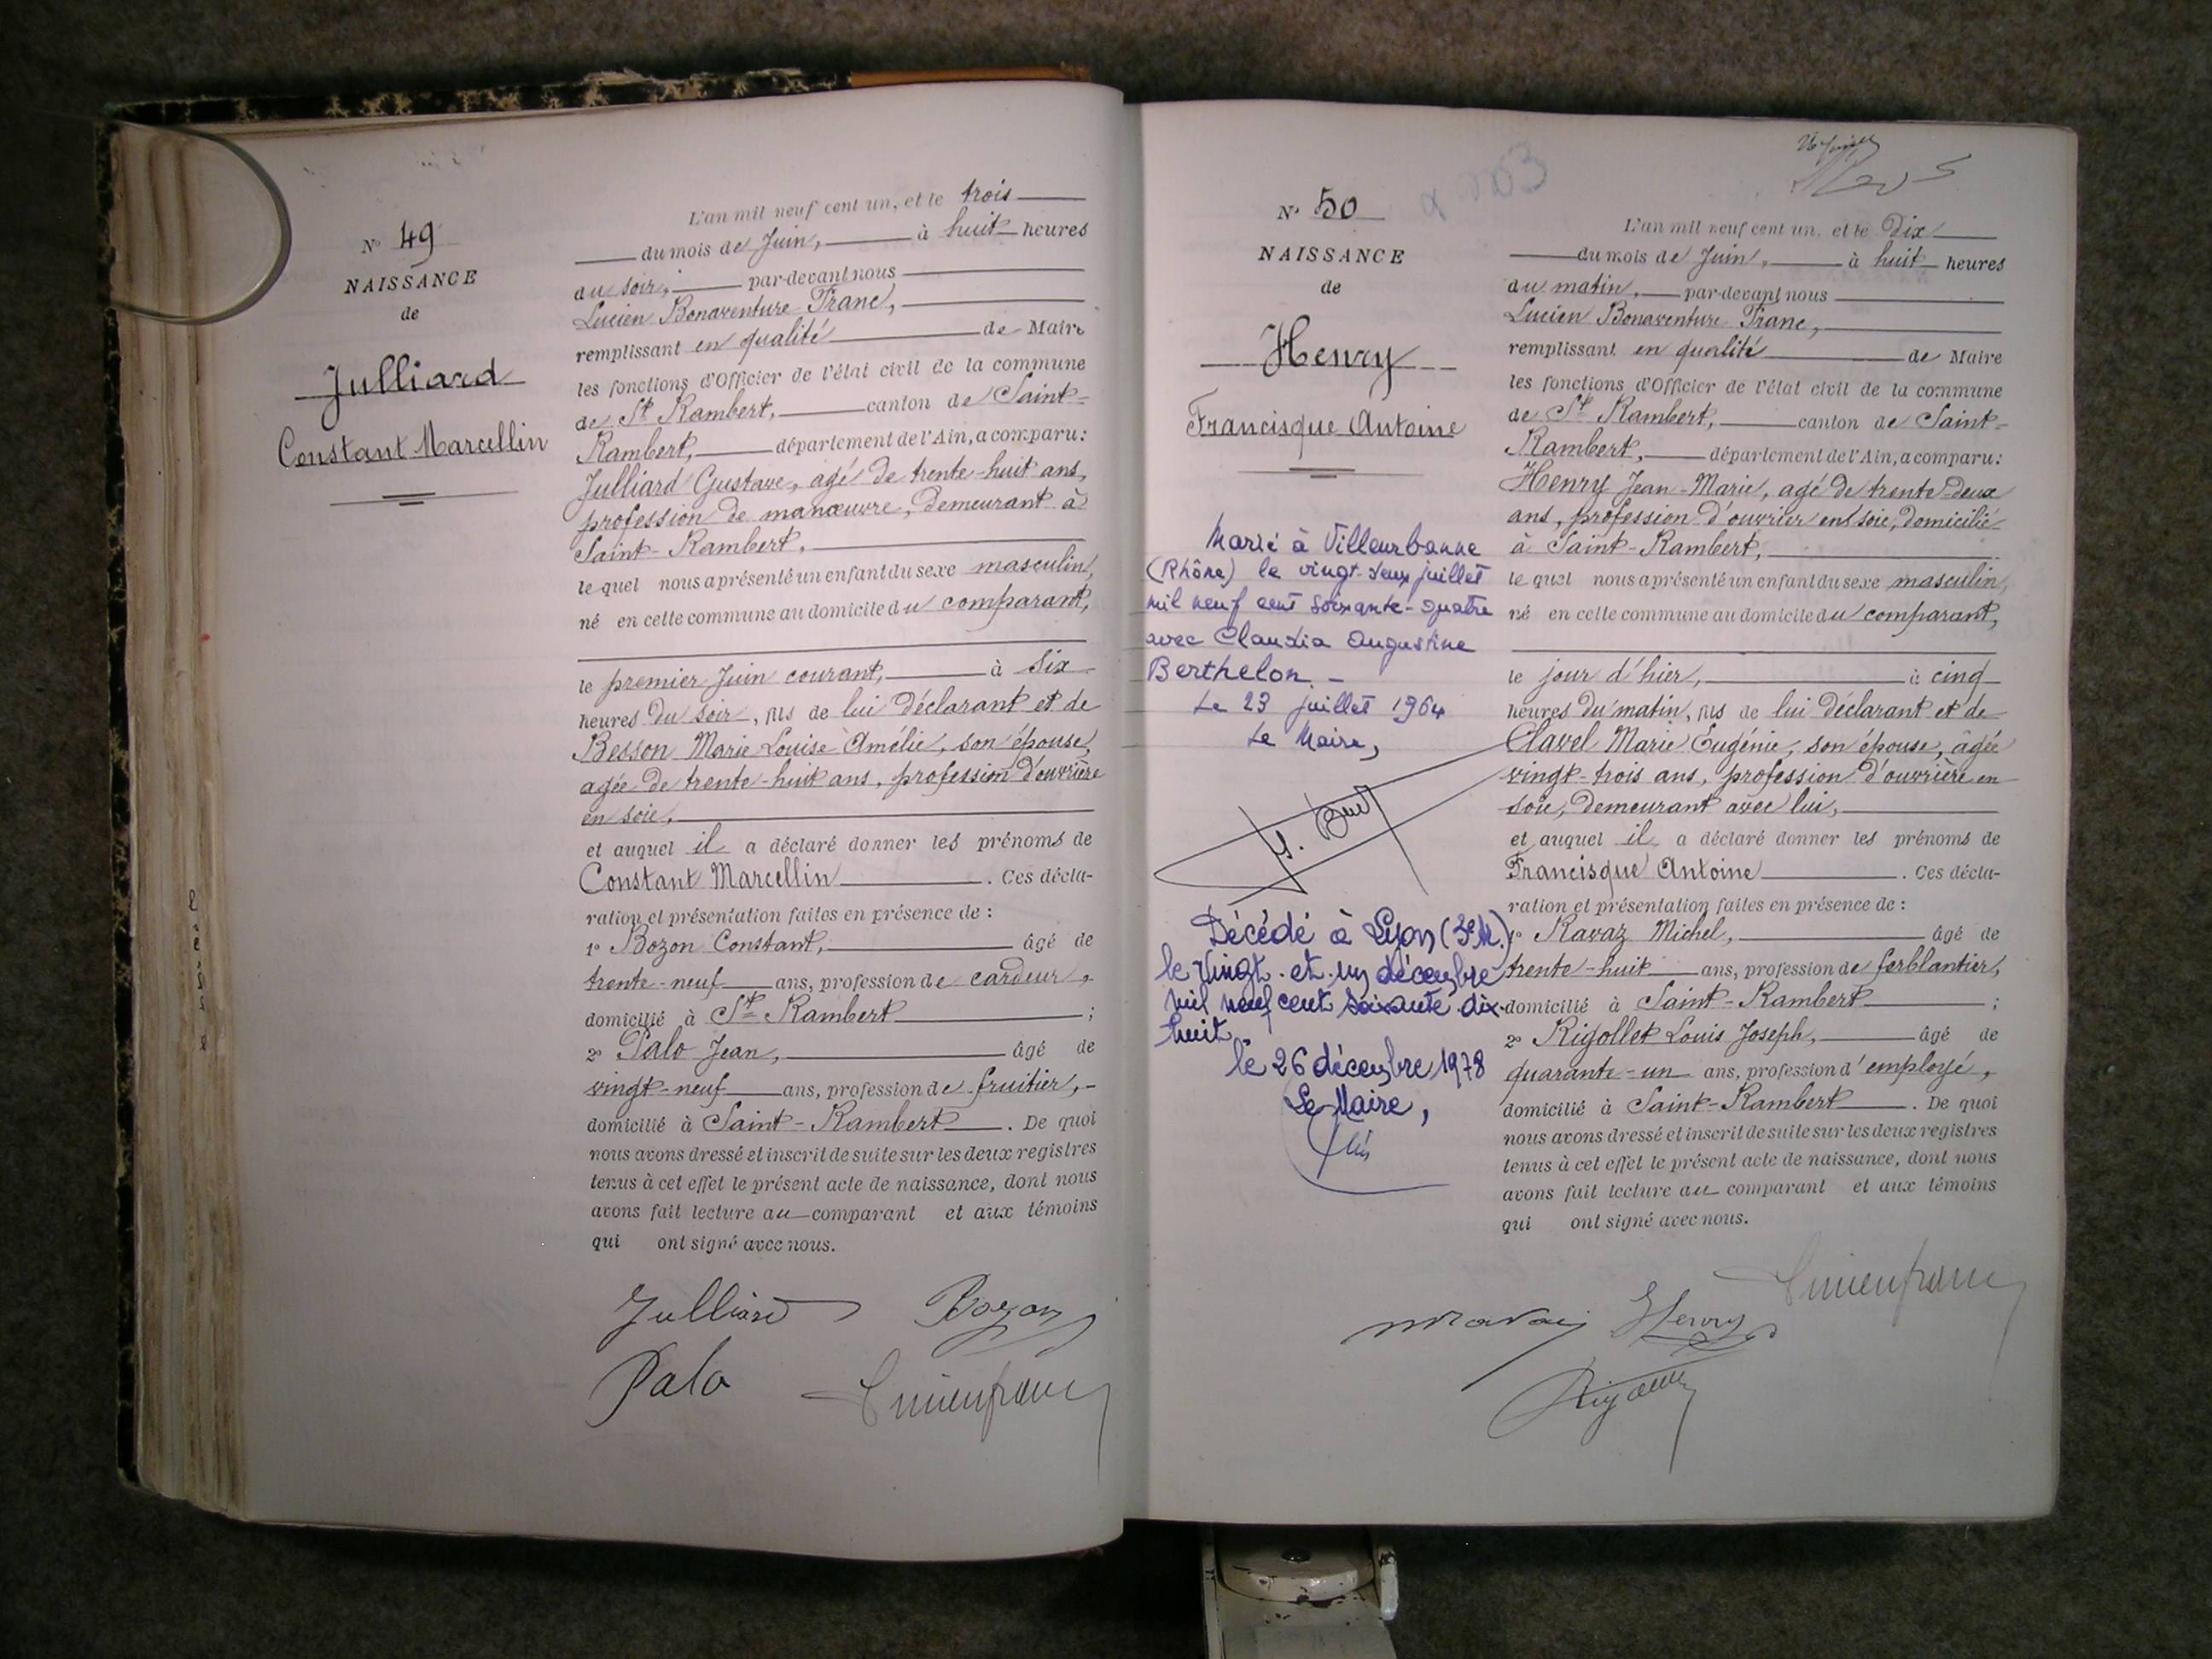 N° 49
NAISSANCE
de
Julliard
Constant Marcellin
L'an mil neuf cent un, et le trois
du mois de Juin, à huit heures
du soir, par-devant nous
Lucien Bonaventure Franc,
remplissant en qualité de Maire
les fonctions d'Officier de l'état civil de la commune
de St Rambert, canton de Saint-
Rambert, département de l'Ain, a comparu:
Julliard Gustave, agé de trente-huit ans,
profession de manœuvre, demeurant à
Saint-Rambert,
le quel nous a présenté un enfant du sexe masculin,
né en cette commune au domicile du comparant,
le premier Juin courant, à six
heures du soir, fils de lui déclarant et de
Besson Marie Louise Amélie, son épouse,
agée de trente-huit ans, profession d'ouvrière
en soie,
et auquel il a déclaré donner les prénoms de
Constant Marcellin. Ces décla-
ration et présentation faites en présence de :
1° Bozon Constant, âgé de
trente-neuf ans, profession de cardeur,
domicilié à St Rambert ;
2° Palo Jean, âgé de
vingt-neuf ans, profession de fruitier,
domicilié à Saint-Rambert. De quoi
nous avons dressé et inscrit de suite sur les deux registres
tenus à cet effet le présent acte de naissance, dont nous
avons fait lecture au comparant et aux témoins
qui ont signé avec nous.
Julliard Bozon
Palo
N° 50
NAISSANCE
de
Henry
Francisque Antoine
Marié à Villeurbanne
(Rhône) le vingt-deux juillet
mil neuf cent soixante-quatre
avec Claudia Augustine
Berthelon. -
Le 23 juillet 1964
Le Maire,
Décédé à Lyon (3e M.)
le vingt et un décembre
mil neuf cent soixante dix-
huit.
le 26 décembre 1978
Le Maire,
L'an mil neuf cent un, et le Dix
du mois de Juin, à huit heures
du matin, par-devant nous
Lucien Bonaventure Franc,
remplissant en qualité de Maire
les fonctions d'Officier de l'état civil de la commune
de St Rambert, canton de Saint-
Rambert, département de l'Ain, a comparu:
Henry Jean-Marie, agé de trente-deux
ans, profession d'ouvrier en soie, domicilié
à Saint-Rambert,
le quel nous a présenté un enfant du sexe masculin,
né en cette commune au domicile du comparant,
le jour d'hier, à cinq
heures du matin, fils de lui déclarant et de
Clavel Marie Eugénie, son épouse, âgée
vingt-trois ans, profession d'ouvrière en
soie, demeurant avec lui,
et auquel il a déclaré donner les prénoms de
Francisque Antoine. Ces décla-
ration et présentation faites en présence de :
1° Ravaz Michel, âgé de
trente-huit ans, profession de ferblantier,
domicilié à Saint-Rambert ;
2° Rigollet Louis Joseph, âgé de
quarante-un ans, profession d'employé,
domicilié à Saint-Rambert. De quoi
nous avons dressé et inscrit de suite sur les deux registres
tenus à cet effet le présent acte de naissance, dont nous
avons fait lecture au comparant et aux témoins
qui ont signé avec nous.
Henry